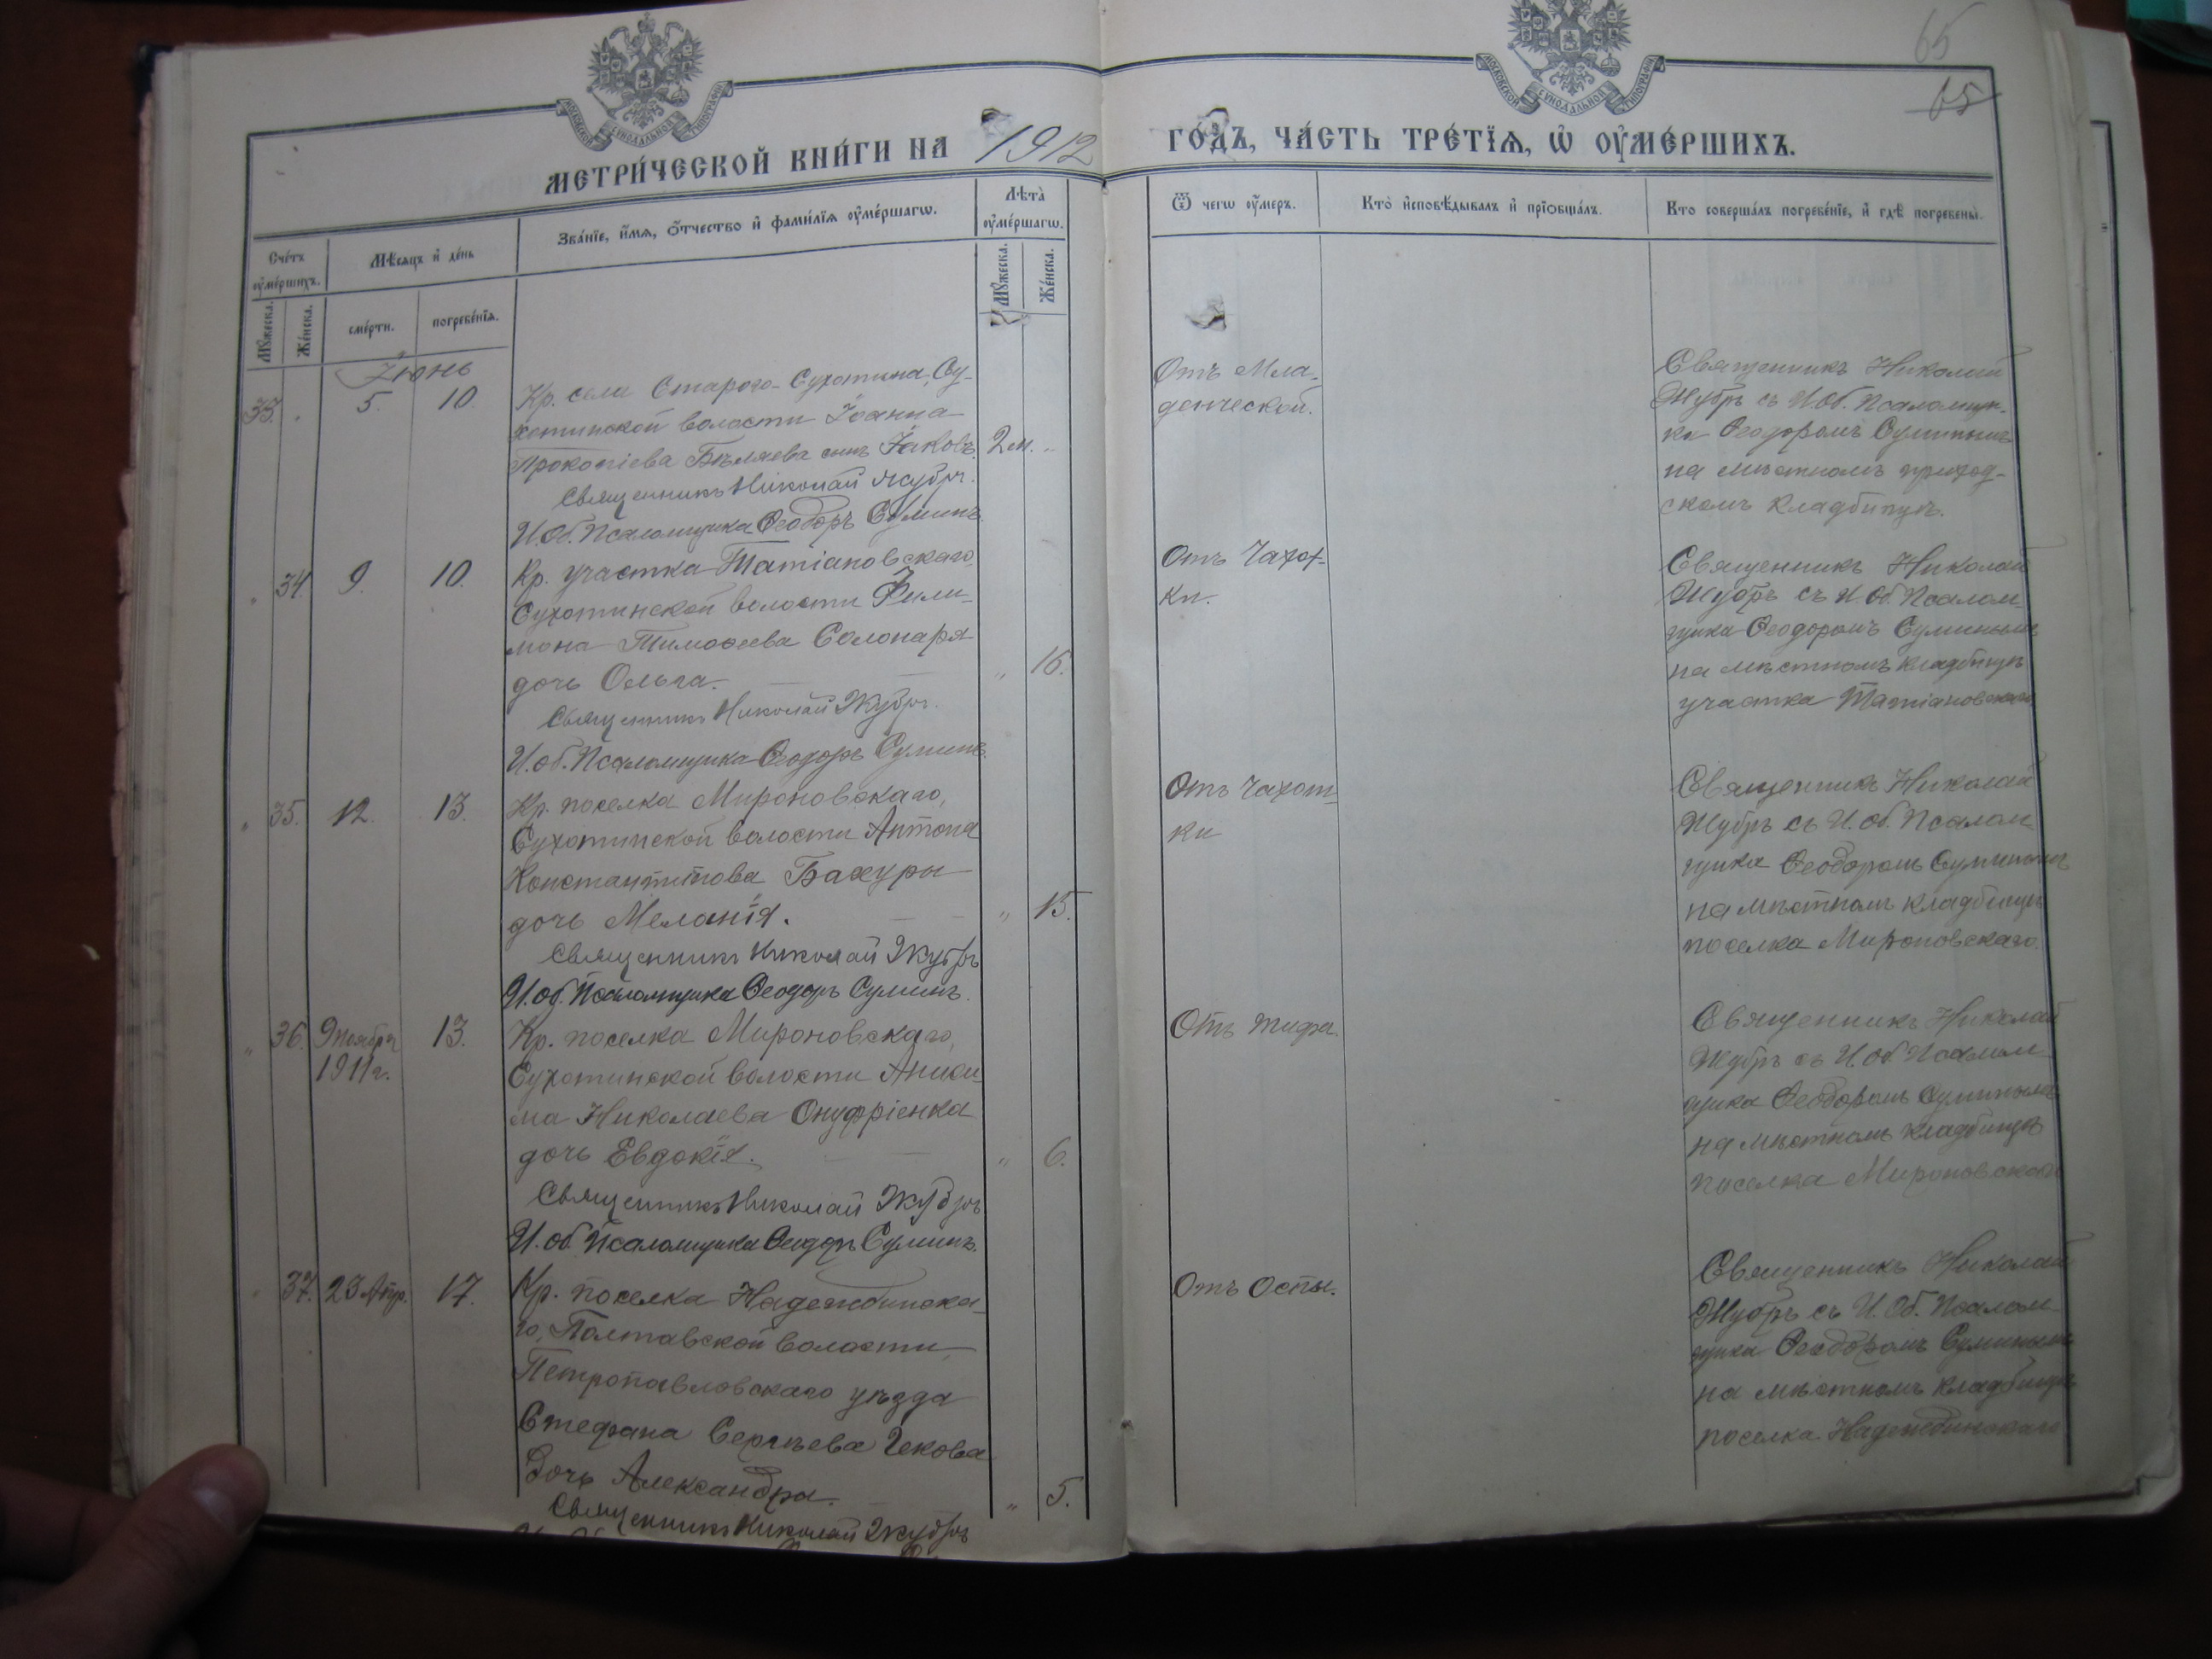 МОСКОВСКОЙ СѴНОДАЛЬНОЙ ТИПОГРАФІИ
МОСКОВСКОЙ СѴНОДАЛЬНОЙ ТИПОГРАФІИ
65
65
МЕТРИ́ЧЕСКОЙ КНИ́ГИ НА 1912 ГО́ДЪ, ЧА́СТЬ ТРЕ́ТЇѦ, Ѡ҆ ОУ҆МЕ́РШИХЪ.
Сче́тъ оу҆ме́ршихъ.
Мѣ́сяцъ и҆ де́нь
Зва́нїе, и҆́мѧ, ѻ҆́тчество и҆ фами́лїѧ оу҆ме́ршагѡ.
Лѣта̀ оу҆ме́ршагѡ.
Ѿ чегѡ оу҆́меръ.
Кто̀ и҆сповѣ́дывалъ и҆ прїѻбща́лъ.
Кто соверша́лъ погребе́нїе, и҆ гдѣ̀ погребены̀.
Мꙋ́жеска.
Же́нска.
сме́рти.
погребе́нїѧ.
Мꙋ́жеска.
Же́нска.
Іюнь
33. " 5. 10.
Кр. села Старого-Сухотина, Су-
хотинской волости Іоанна
Прокопіева Бѣляева сынъ Іаковъ. 2 м. "
Священникъ Николай Жубръ.
И. Об. Псаломщика Ѳеодоръ Суминъ.
Отъ Мла-
денческой.
Священникъ Николай
Жубръ съ И. Об. Псаломщи-
ка Ѳеодоромъ Суминымъ
на мѣстномъ приход-
скомъ кладбищѣ.
" 34. 9. 10.
Кр. участка Татіановскаго,
Сухотинской волости Фили-
мона Тимоѳеева Солонаря
дочь Ольга. " 16.
Священникъ Николай Жубръ.
И. об. Псаломщика Ѳеодоръ Суминъ.
Отъ Чахот-
ки.
Священникъ Николай
Жубръ съ И. Об. Псалом-
щика Ѳеодоромъ Суминымъ
на мѣстномъ кладбищѣ
участка Татіановскаго
" 35. 12. 13.
Кр. поселка Мироновскаго,
Сухотинской волости Антона
Константинова Бахуры
дочь Меланія. " 15.
Священникъ Николай Жубръ
И. об. Псаломщика Ѳеодоръ Суминъ.
Отъ Чахот-
ки
Священникъ Николай
Жубръ съ И. об. Псалом-
щика Ѳеодоромъ Суминымъ
на мѣстномъ кладбищѣ
поселка Мироновскаго.
" 36. 9 ноября 1911 г. 13.
Кр. поселка Мироновскаго,
Сухотинской волости Аниси-
ма Николаева Онуфріенка
дочь Евдокія. " 6.
Священникъ Николай Жубръ
И. об. Псаломщика Ѳеодоръ Суминъ.
Отъ тифа.
Священникъ Николай
Жубръ съ И. Об. Псалом-
щика Ѳеодоромъ Суминымъ
на мѣстномъ кладбищѣ
поселка Мироновскаго
" 37. 23 Апр. 17.
Кр. поселка Надеждинска-
го, Полтавской волости,
Петропавловскаго уѣзда
Стефана Сергѣева Чекова
дочь Александра. " 5.
Священникъ Николай Жубръ
Отъ Оспы.
Священникъ Николай
Жубръ съ И. Об. Псалом-
щика Ѳеодоромъ Суминымъ
на мѣстномъ кладбищѣ
поселка Надеждинскаго